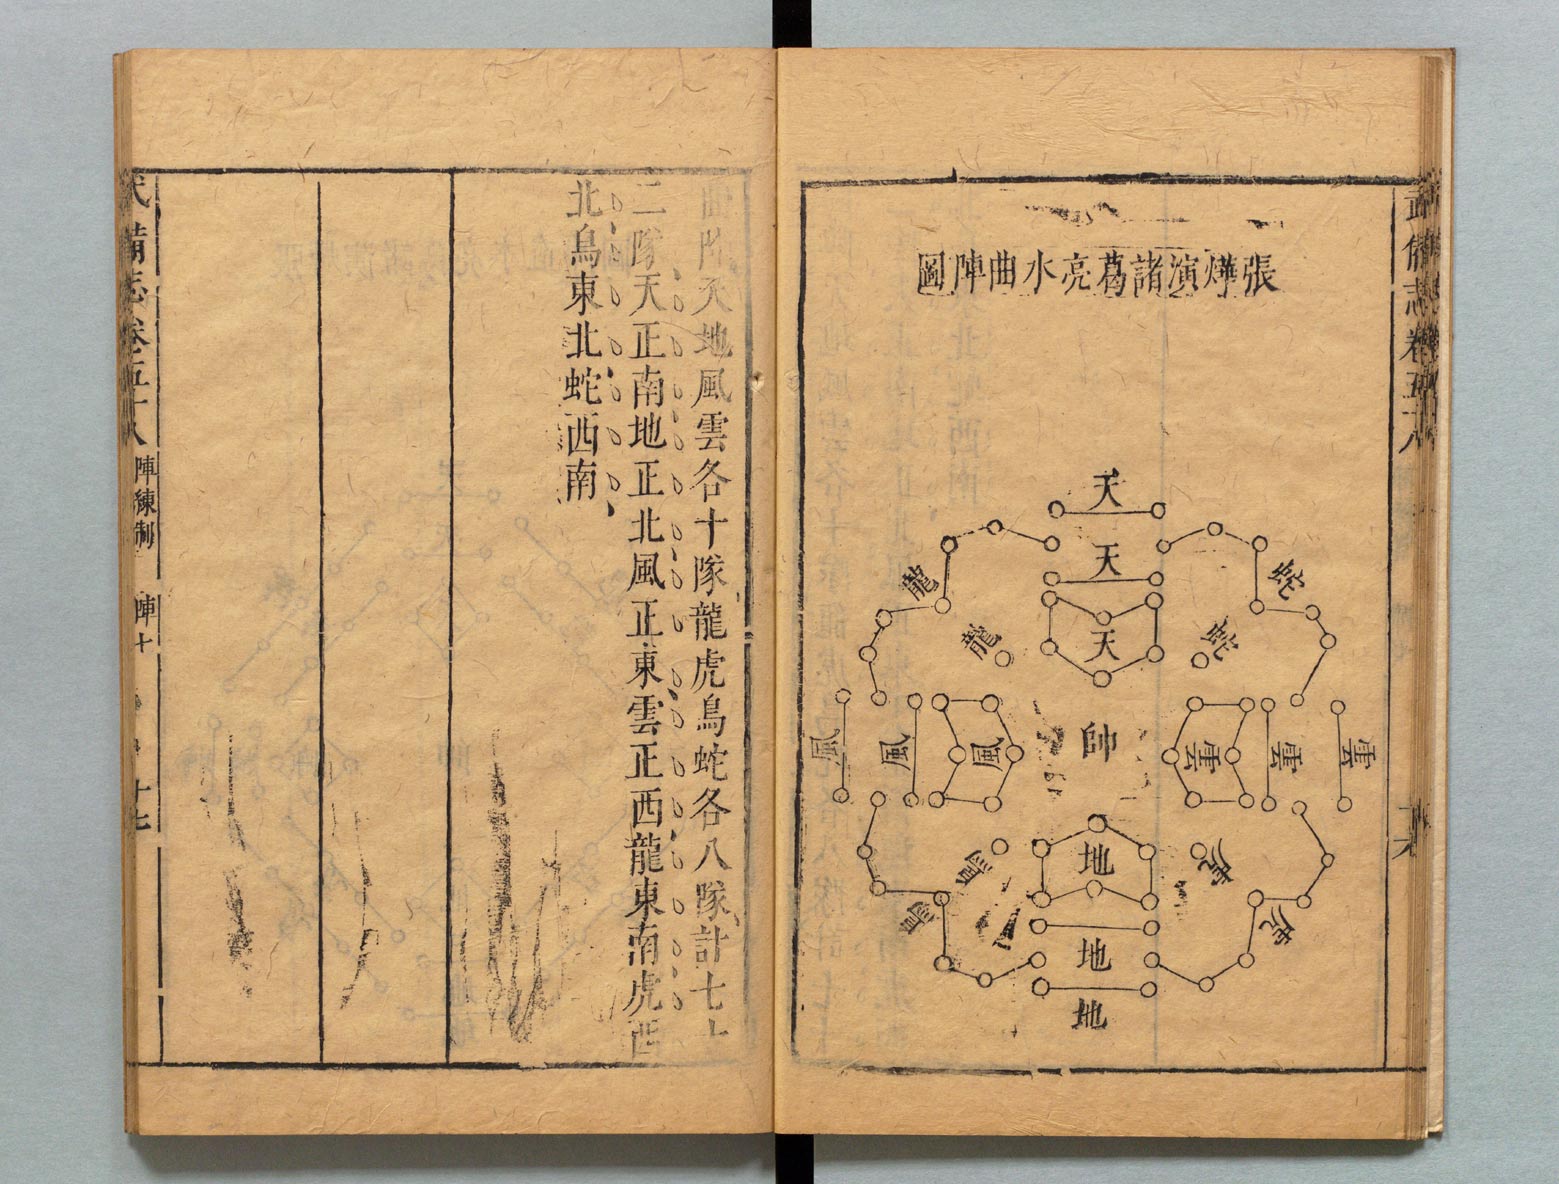 武備志卷五十八
張燁演諸葛亮水曲陣圖
天
天
天
蛇
蛇
龍
龍
雲
雲
雲
帥
風
風
風
虎
虎
鳥
鳥
地
地
地
曲陣天地風雲各十隊龍虎鳥蛇各八隊計七十
二隊天正南地正北風正東雲正西龍東南虎西
北鳥東北蛇西南
武備志卷五十八 陣練制 陣十 十七